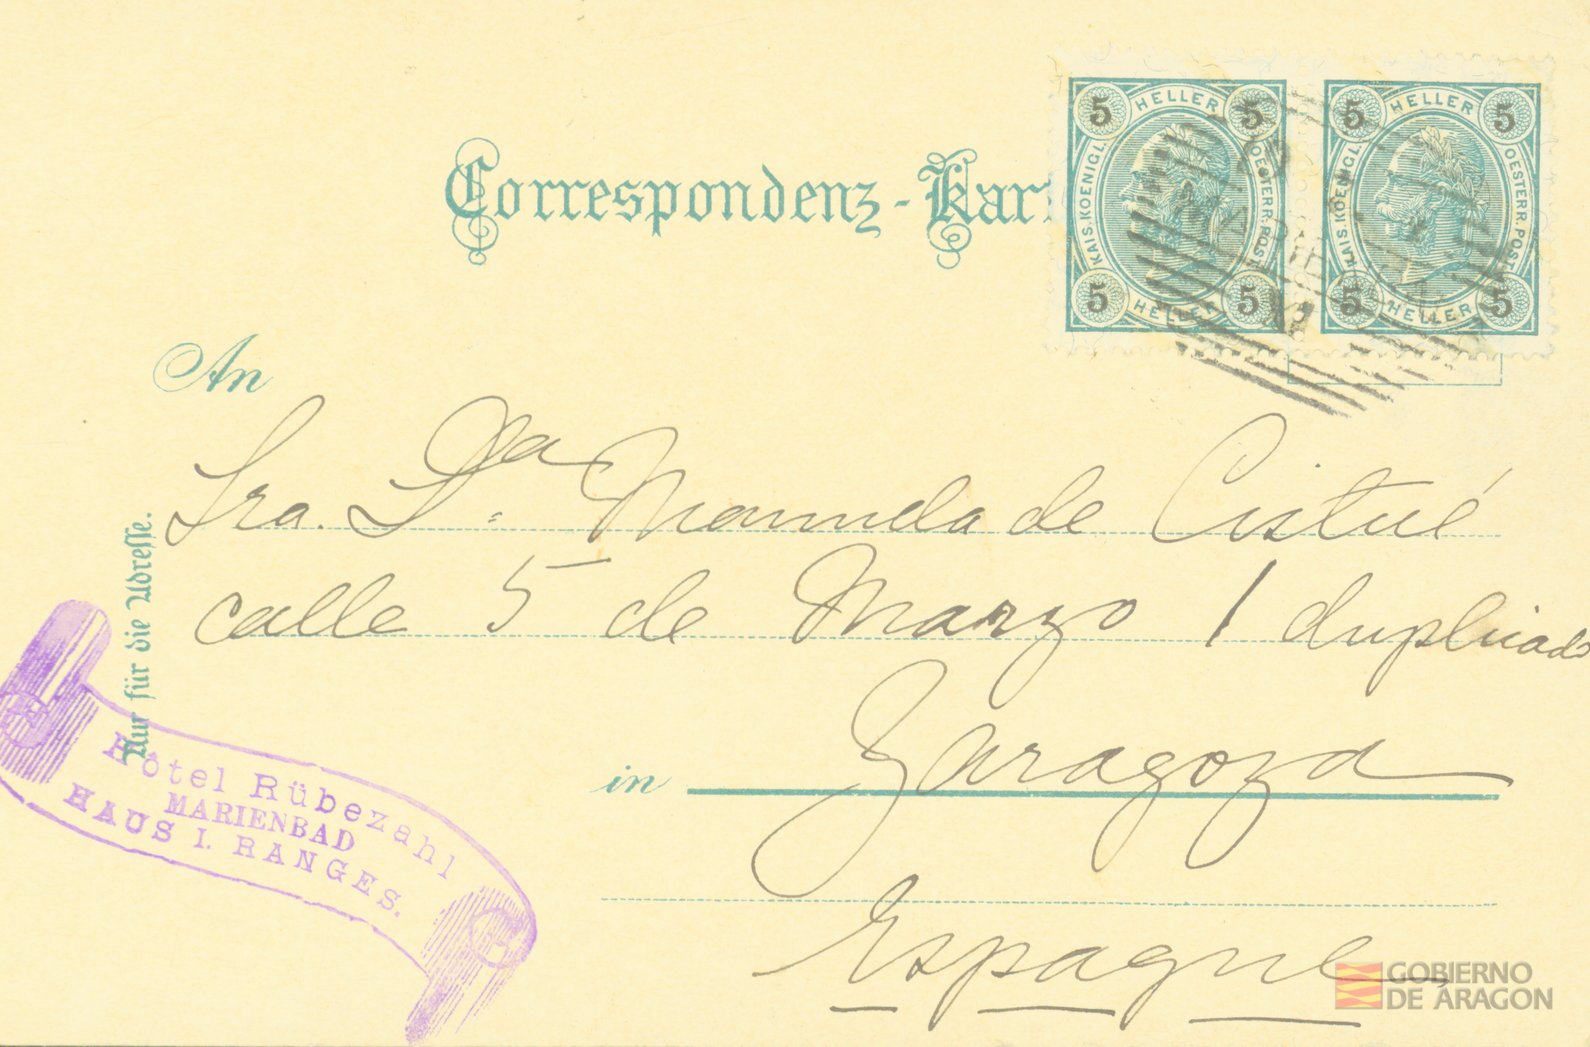 Correspondenz-Kar
5 HELLER 5
KAIS. KOENIGL.
OESTERR. POST
5 HELLER 5
5 HELLER 5
KAIS. KOENIGL.
OESTERR. POST
5 HELLER 5
An
Sra. Dª Manuela de Cistué
calle 5 de Marzo 1 duplicado
in Zaragoza
Espagne
Nur für die Adresse.
Hôtel Rübezahl
MARIENBAD
HAUS I. RANGES.
GOBIERNO
DE ARAGON